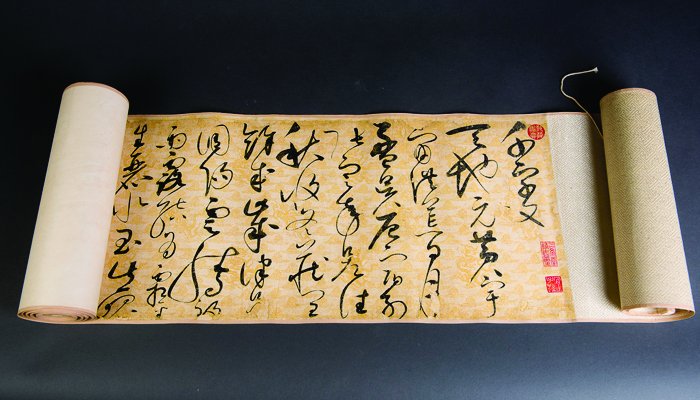 千字文
天地元黄宇
宙洪荒日月
盈昃辰宿列
張寒来暑往
秋收冬藏閏
餘成歲律呂
調陽雲騰致
雨露結為霜金
生麗水玉出崑